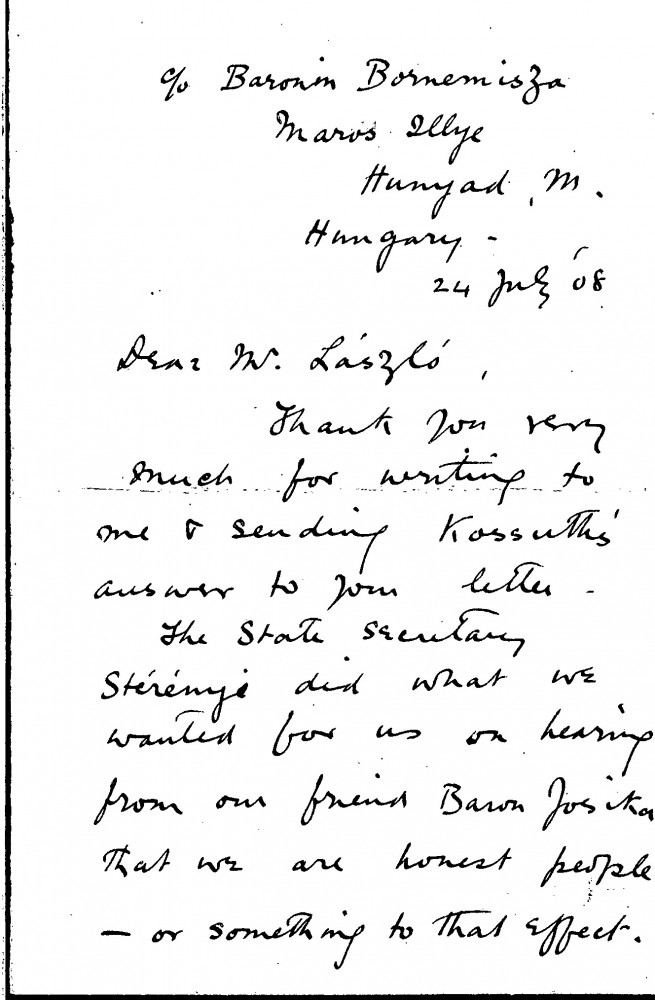 c/o Baronin Bornemisza
Maros Illye
Hunyad, M.
Hungary -
24 July '08
Dear Mr. László,
Thank you very
much for writing to
me & sending Kossuth's
answer to your letter -
The State Secretary
Stérényi did what we
wanted for us on hearing
from our friend Baron Josika
that we are honest people
— or something to that effect.